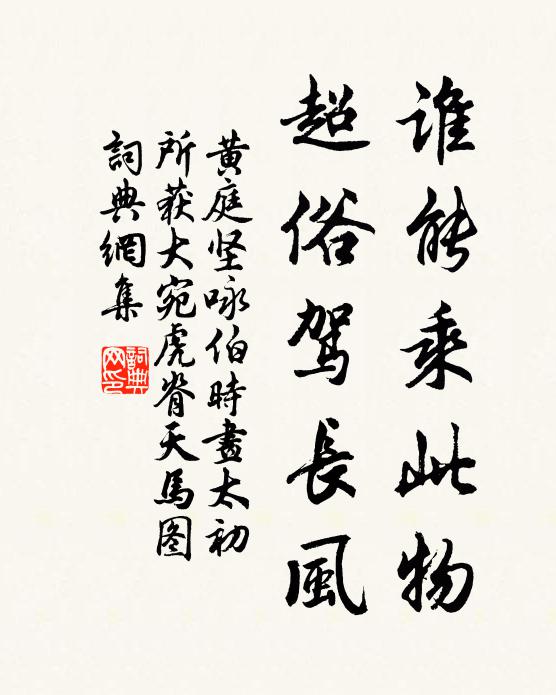 谁能乘此物
超俗驾長風
黄庭坚咏伯時畫太初
所获大宛虎脊天馬图
詞典網集
詞典网印